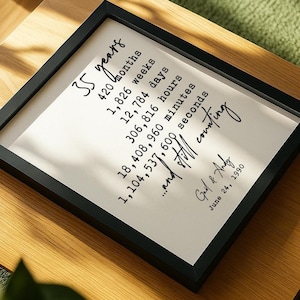 35 years
420 months
1,826 weeks
12,784 days
306,816 hours
18,408,960 minutes
1,104,537,600 seconds
...and still counting
June 24, 1990